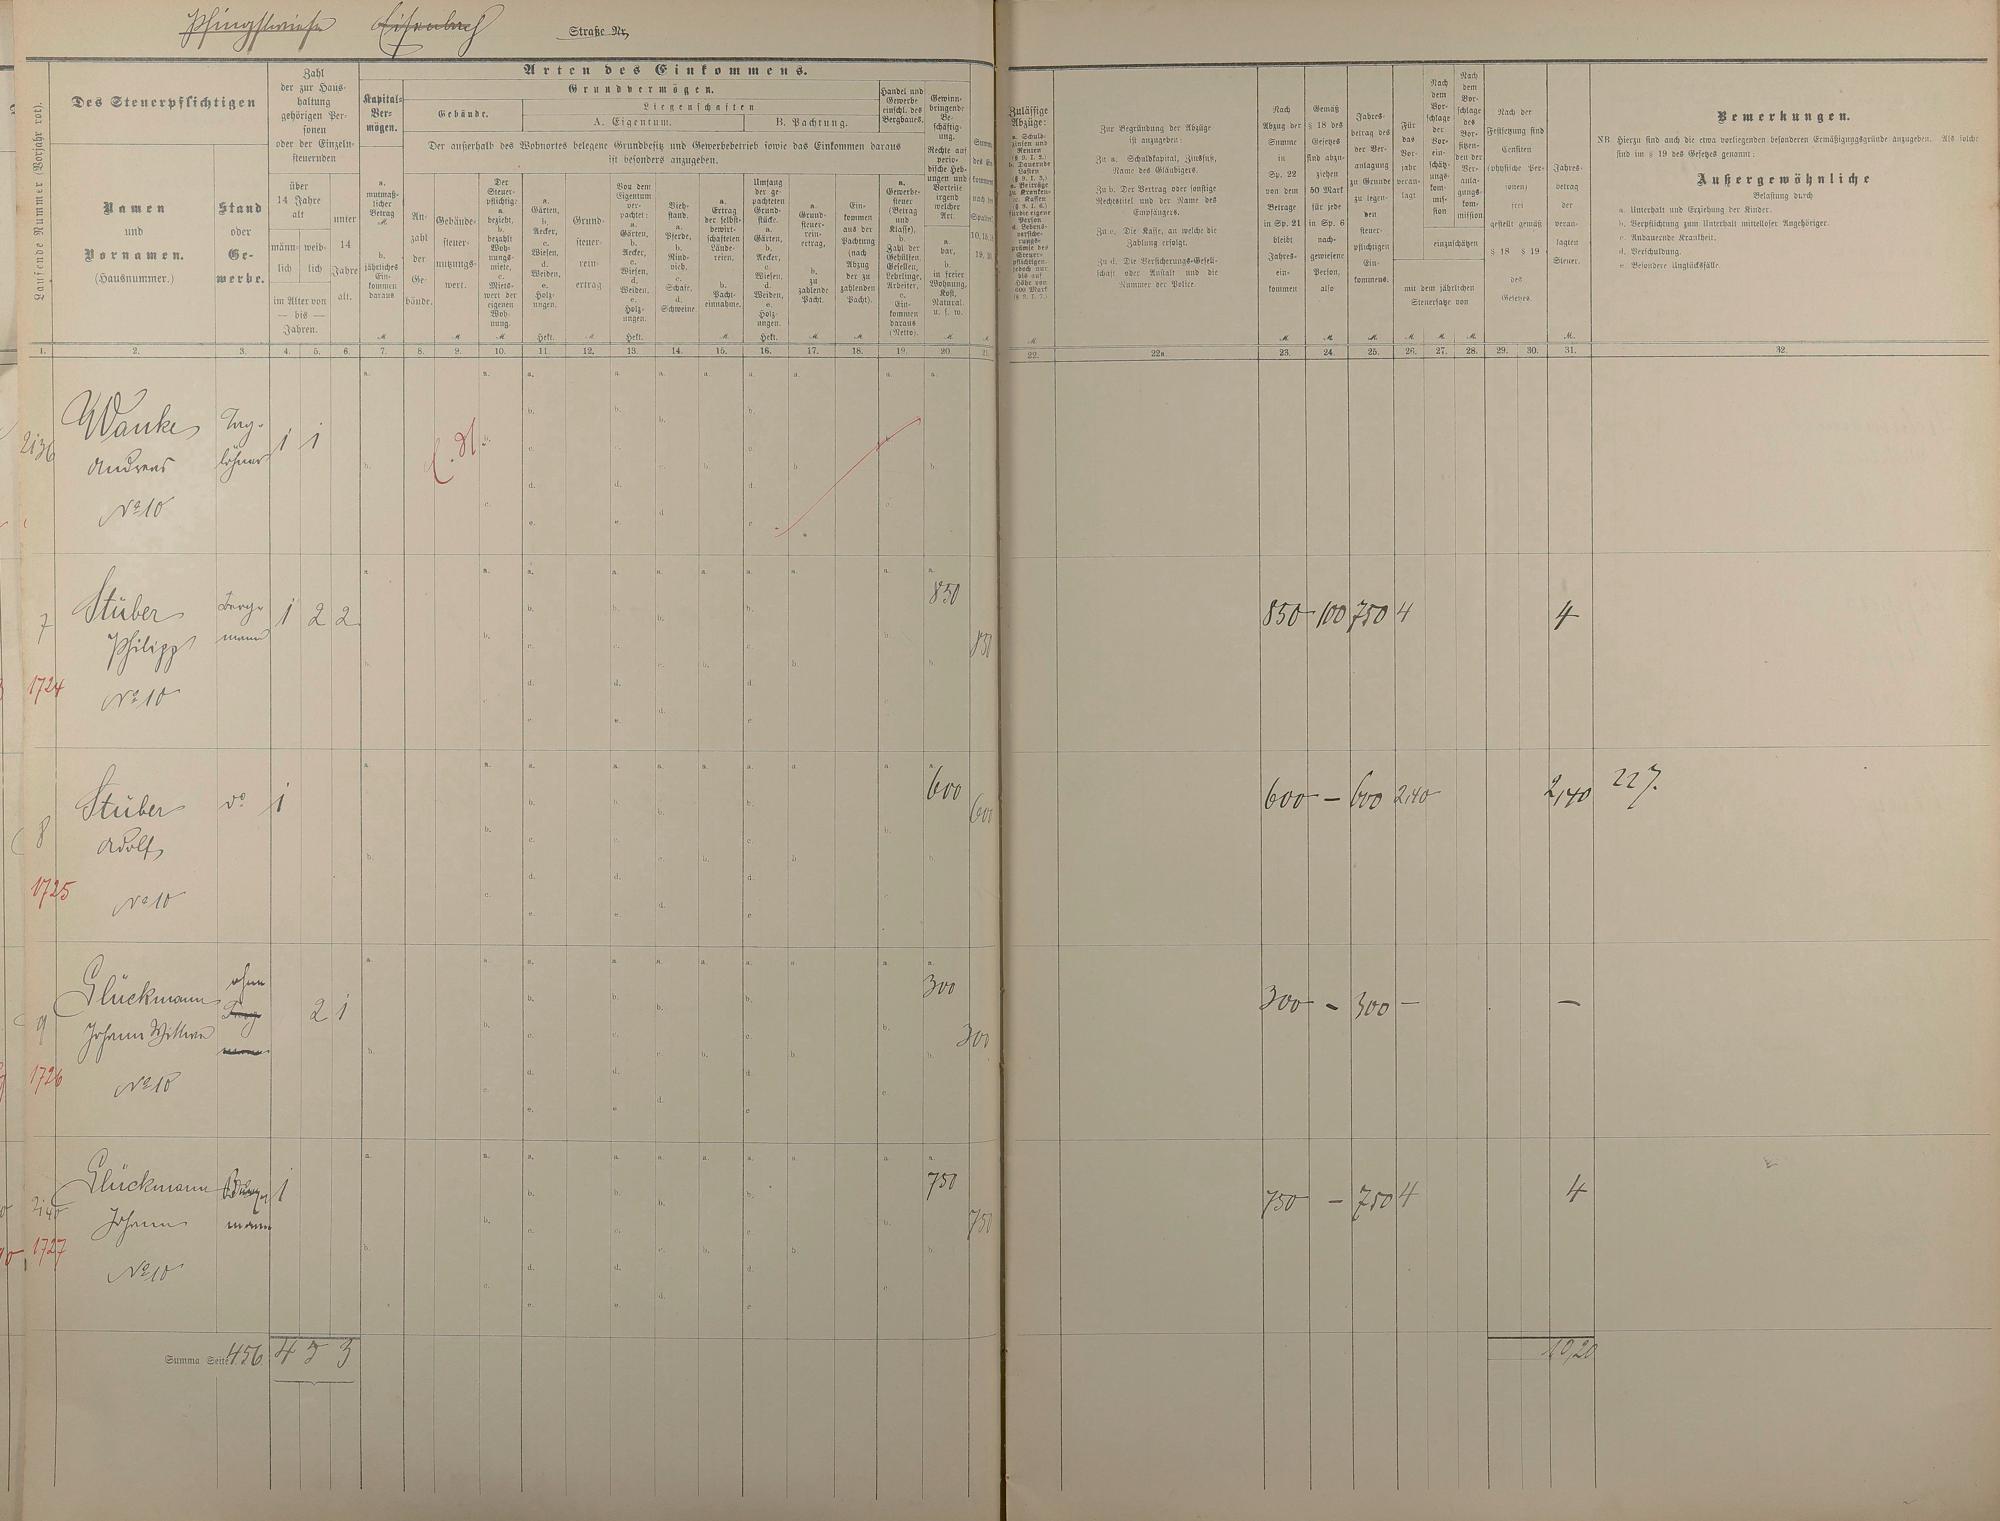 Pfingstwiese Eisenbach Straße Nr.
Laufende Nummer (Vorjahr rot).
Des Steuerpflichtigen
Namen
und
Vornamen.
(Hausnummer.)
Stand
oder
Ge-
werbe.
Zahl
der zur Haus-
haltung
gehörigen Per-
sonen
oder der Einzeln-
steuernden
über
14 Jahre
alt
männ-
lich
weib-
lich
im Alter von
— bis —
Jahren.
unter
14
Jahre
alt.
Arten des Einkommens.
Kapital-
Ver-
mögen.
a.
mutmaß-
licher
Betrag
M.
b.
jährliches
Ein-
kommen
daraus
Grundvermögen.
Gebäude.
Liegenschaften
A. Eigentum.
B. Pachtung.
Der außerhalb des Wohnortes belegene Grundbesitz und Gewerbebetrieb sowie das Einkommen daraus
ist besonders anzugeben.
An-
zahl
der
Ge-
bäude.
Gebäude-
steuer-
nutzungs-
wert.
Der
Steuer-
pflichtige:
a.
bezieht,
b.
bezahlt
Woh-
nungs-
miete,
c.
Miets-
wert der
eigenen
Woh-
nung.
a.
Gärten,
b.
Aecker,
c.
Wiesen,
d.
Weiden,
e.
Holz-
ungen.
Hekt.
Grund-
steuer-
rein-
ertrag
Von dem
Eigentum
ver-
pachtet:
a.
Gärten,
b.
Aecker,
c.
Wiesen,
d.
Weiden,
e.
Holz-
ungen.
Hekt.
Vieh-
stand.
a.
Pferde,
b.
Rind-
vieh,
c.
Schafe,
d.
Schweine.
a.
Ertrag
der selbst-
bewirt-
schafteten
Lände-
reien,
b.
Pacht-
einnahme.
Umfang
der ge-
pachteten
Grund-
stücke.
a.
Gärten,
b.
Aecker,
c.
Wiesen,
d.
Weiden,
e.
Holz-
ungen.
Hekt.
a.
Grund-
steuer-
rein-
ertrag,
b.
zu
zahlende
Pacht.
Ein-
kommen
aus der
Pachtung
(nach
Abzug
der zu
zahlenden
Pacht).
Handel und
Gewerbe
einschl. des
Bergbaues.
a.
Gewerbe-
steuer
(Betrag
und
Klasse),
b.
Zahl der
Gehülfen,
Gesellen,
Lehrlinge,
Arbeiter,
c.
Ein-
kommen
daraus
(Netto).
Gewinn-
bringende
Be-
schäftig-
ung.
Rechte auf
perio-
dische Heb-
ungen und
Vorteile
irgend
welcher
Art.
a.
bar,
b.
in freier
Wohnung,
Kost,
Natural.
u. s. w.
Zulässige
Abzüge:
a. Schuld-
zinsen und
Renten
(§ 9. I. 2.)
b. Dauernde
Lasten
(§ 9. I. 3.)
c. Beiträge
zu Kranken-
2c. Kassen
(§ 9. I. 6.)
für die eigene
Person
d. Lebens-
versiche-
rungs-
prämie des
Steuer-
pflichtigen,
jedoch nur
bis auf
Höhe von
600 Mark
(§ 9. I. 7.)
Zur Begründung der Abzüge
ist anzugeben:
Zu a. Schuldkapital, Zinsfuß,
Name des Gläubigers.
Zu b. Der Vertrag oder sonstige
Rechtstitel und der Name des
Empfängers.
Zu c. Die Kasse, an welche die
Zahlung erfolgt.
Zu d. Die Versicherungs-Gesell-
schaft oder Anstalt und die
Nummer der Police.
Nach
Abzug der
Summe
in
Sp. 22
von dem
Betrage
in Sp. 21
bleibt
Jahres-
ein-
kommen
Gemäß
§ 18 des
Gesetzes
sind abzu-
ziehen
50 Mark
für jede
in Sp. 6
nach-
gewiesene
Person,
also
Jahres-
betrag des
der Ver-
anlagung
zu Grunde
zu legen-
den
steuer-
pflichtigen
Ein-
kommens.
Für
das
Vor-
jahr
veran-
lagt
Nach
dem
Vor-
schlage
der
Vor-
ein-
schätz-
ungs-
kom-
mis-
sion
Nach
dem
Vor-
schlage
des
Vor-
sitzen-
den der
Ver-
anla-
gungs-
kom-
mission
einzuschätzen
mit dem jährlichen
Steuersatze von
Nach der
Festsetzung sind
Censiten
(physische Per-
sonen)
frei
gestellt gemäß
§ 18 § 19
des
Gesetzes.
Jahres-
betrag
der
veran-
lagten
Steuer.
M.
Bemerkungen.
NB. Hierzu sind auch die etwa vorliegenden besonderen Ermäßigungsgründe anzugeben. Als solche
sind im § 19 des Gesetzes genannt:
Außergewöhnliche
Belastung durch
a. Unterhalt und Erziehung der Kinder.
b. Verpflichtung zum Unterhalt mittelloser Angehöriger.
c. Andauernde Krankheit.
d. Verschuldung.
e. Besondere Unglücksfälle.
1. 2. 3. 4. 5. 6. 7. 8. 9. 10. 11. 12. 13. 14. 15. 16. 17. 18. 19. 20. 21. 22. 22a. 23. 24. 25. 26. 27. 28. 29. 30. 31. 32.
2136 Wanke Tag- 1 1
Andreas löhner
No 10
7 Stüber Berg- 1 2 2 850 850 100 750 4 4
Philipp mann 850
1724 No 10
8 Stüber do 1 600 600 — 600 2,40 2,40 227.
Adolf 600
1725 No 10
9 Glückmann ohne Berg 2 1 300 300 — 300 — —
Johann Wittwe mann 300
1726 No 10
2140 Glückmann Berg 1 750 750 — 750 4 4
Johann mann 750
1727 No 10
Summa Seite 456 4 5 3 10,20